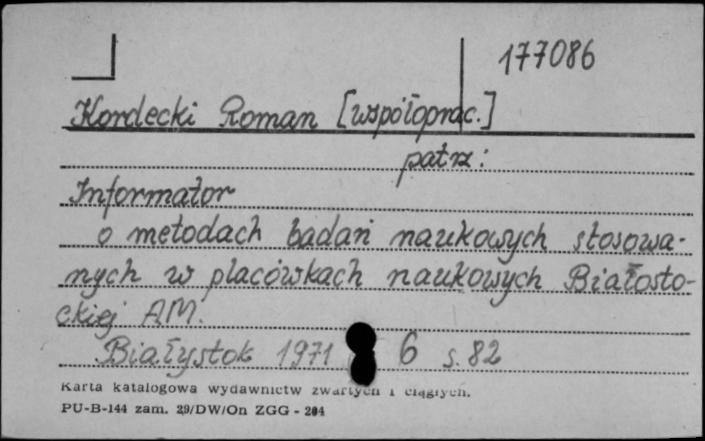 177086
Kordecki Roman [współoprac.]
patrz:
Informator
o metodach badań naukowych stosowa-
nych w placówkach naukowych Białosto-
ckiej AM.
Białystok 1971 6 s. 82
Karta katalogowa wydawnictw zwartych i ciągłych.
PU-B-144 zam. 29/DW/On ZGG - 204